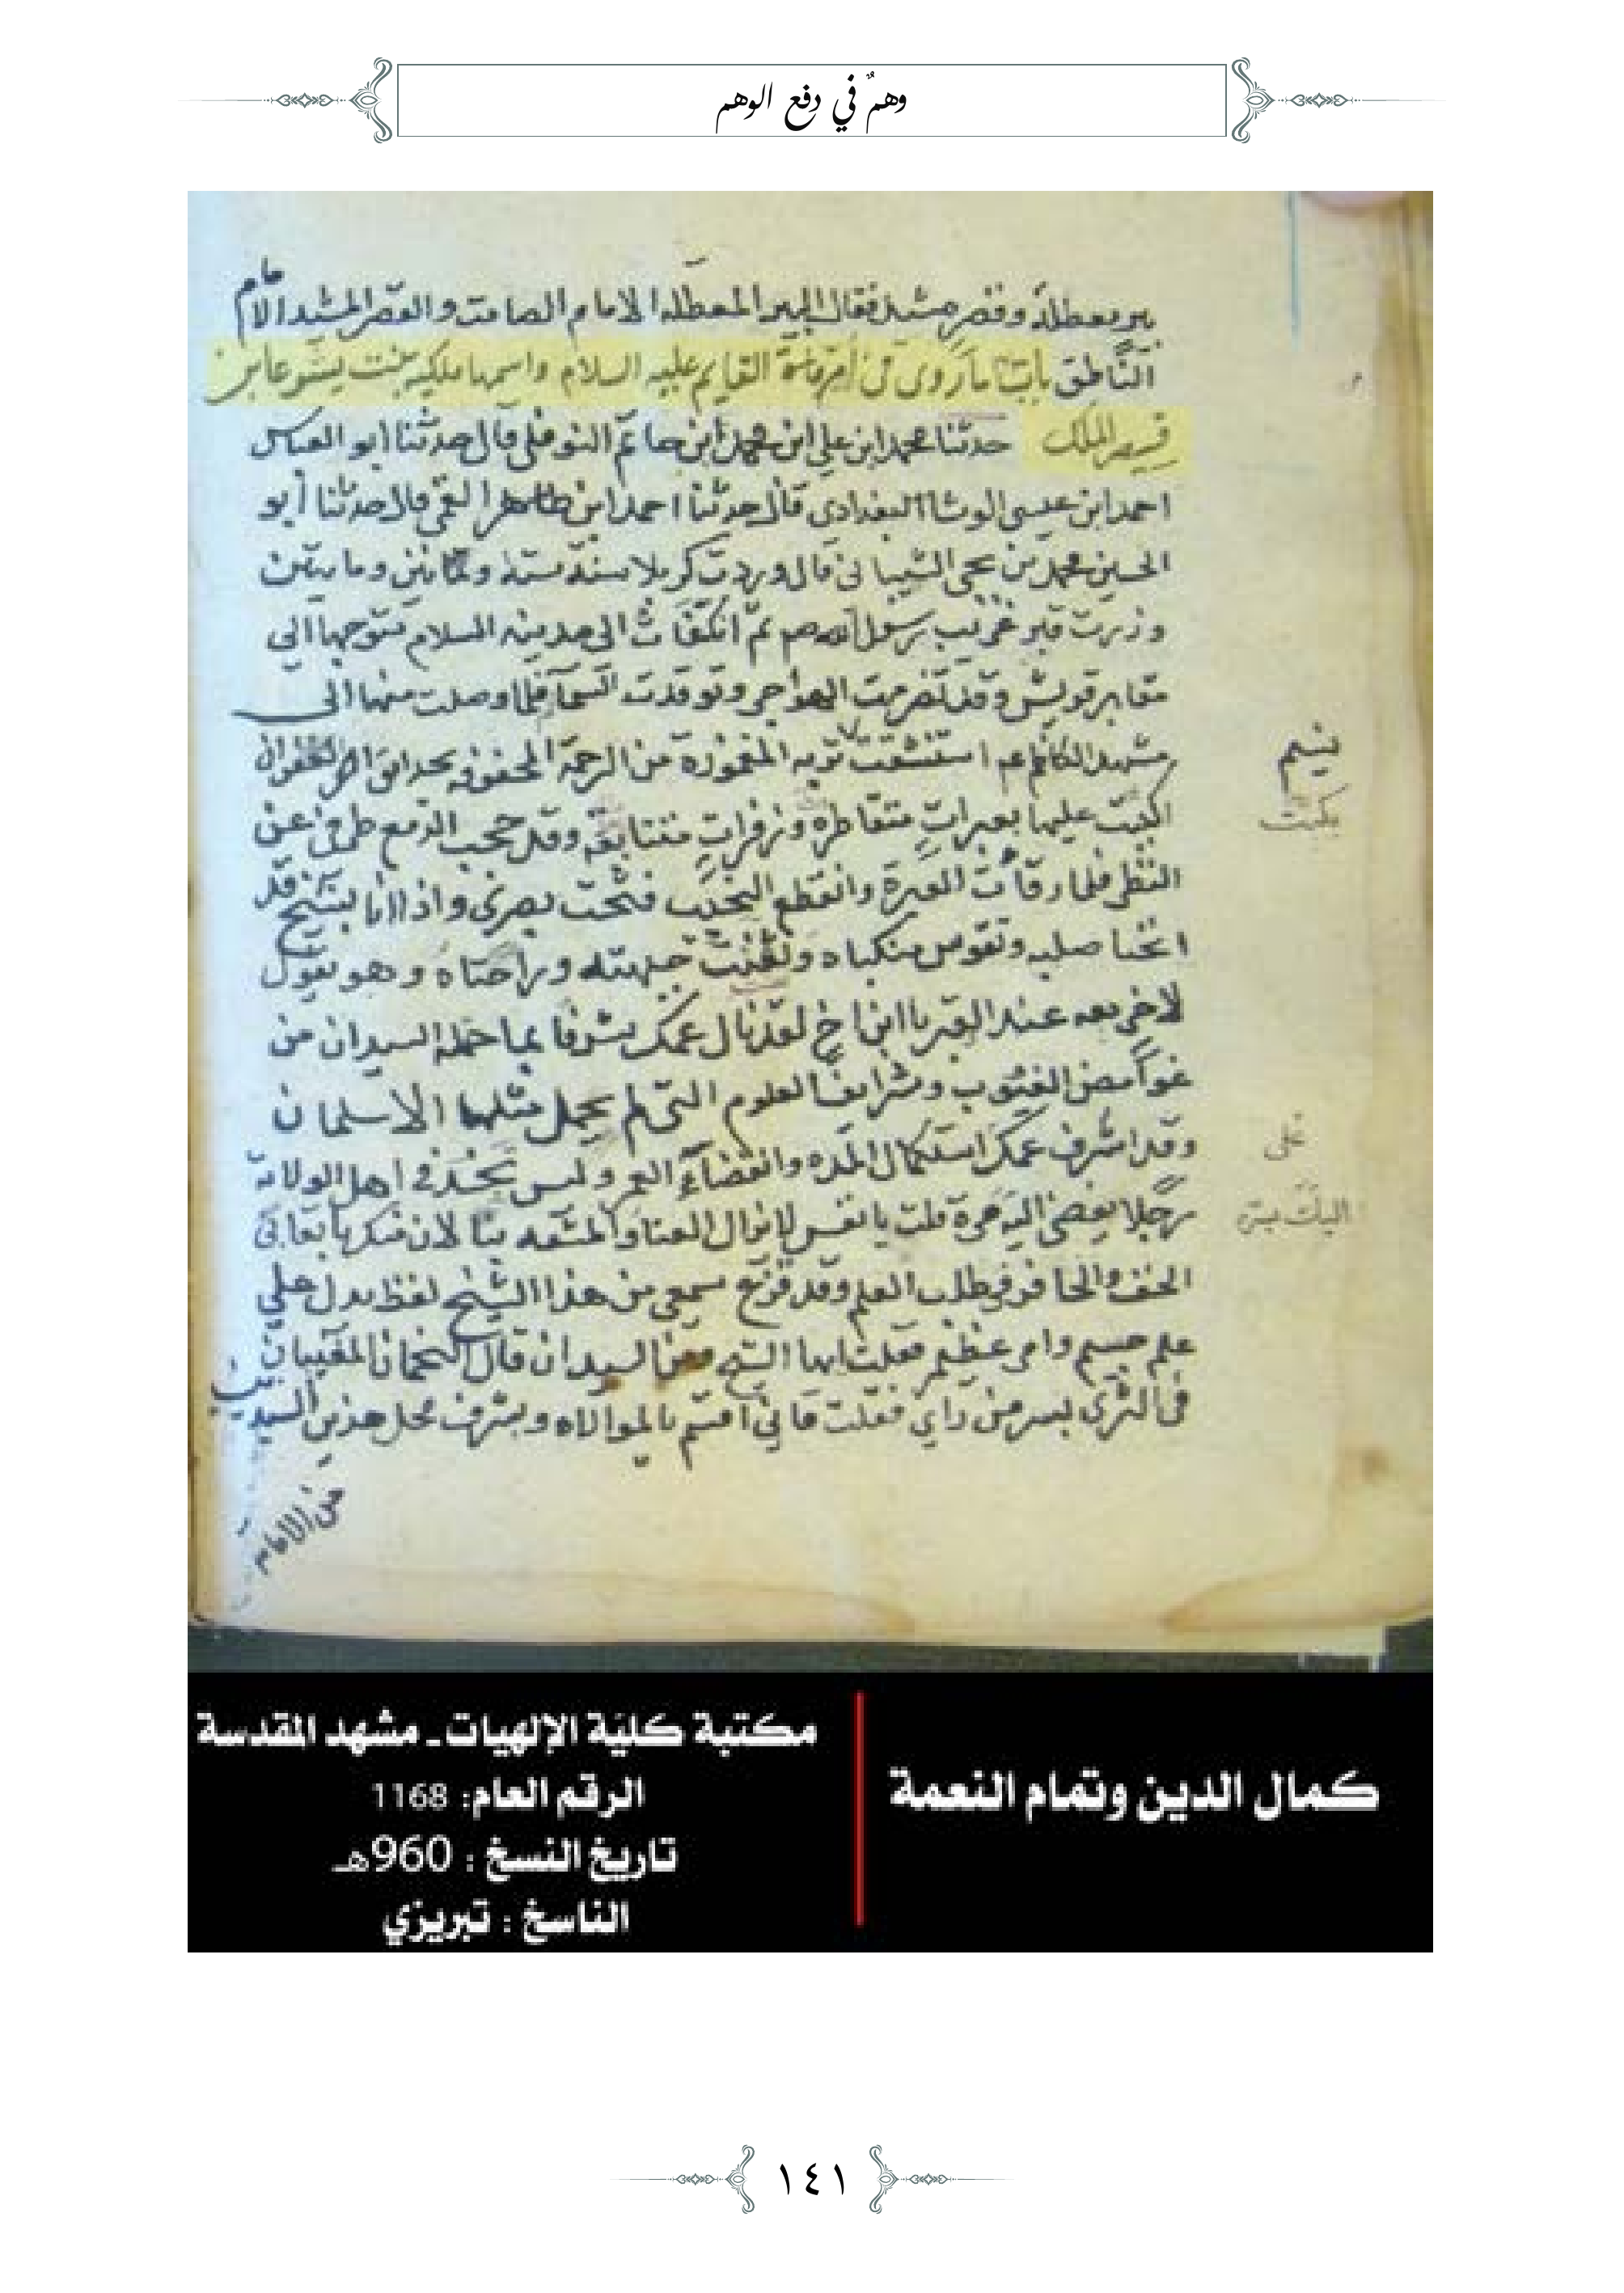 وهمٌ في دفع الوهم
بير معطلة وقصر مشيد فقال البير المعطلة الامام الصامت والقصر المشيد الامام
النَّاطق باب ما روى في القايم عليه السلام واسمها مليكه بنت يشوعا بن
قيصر الملك حدثنا محمد ابن علي ابن محمد ابن حاتم النوفلي قال حدثنا ابو العباس
احمد ابن عيسى الوشا البغدادي قال حدثنا احمد ابن طاهر القمي قال حدثنا أبو
الحسين محمد بن يحيى الشيباني قال وردت كربلا سنه ستة وثمانين وماييتن
وزرت قبر غريب رسول الله صم ثمّ انكفأت الى مدينه السلام متوجها الى
مقابر قريش وقد تضرمت الهواجر وتوقدت السمآ فلما وصلت منها الى
مشهد الكاظم عم استنشقت تربه المغمورة من الرحمة المحفوفه بحدايق الغفران
اكببت عليها بعبراتٍ متقاطرة وزفراتٍ متتابعة وقد حجب الدمع طرفي عن
النظر فلما رقأت العبرة وانقطع النحيب فتحت بصرى واذا انا بشيخ قد
انحنا صلبه وتقوس منكباه وثفنت جبهته وراحتاه وهو يقول
لاخر معه عند القبر يا ابن اخ لقد نال عمك شرفا بما حمله السيدان من
غوامض الغيوب وشرايف العلوم التى لم يحمل مثلها الا سلمان
وقد اشرف عمك استكمال المده وانقضآء العمر وليس يجد في اهل الولاية
رجلا يفضى اليه قلت يا نفس لا يزال العنا والمشقه
الخف والحافر في طلب العلم وقد قرع سمعي من هذا الشيخ لفظ يدل علي
علم جسيم وامر عظيم فقلت ايها الشيخ ومن السيدان قال النجمان المغيبان
فى الثرى بسر من راي فقلت فاني اقسم بالموالاه وبشرف محل هذين السيدين
من الامامة
نسيم
بكيت
على
كمال الدين وتمام النعمة
مكتبة كليّة الإلهيات ـ مشهد المقدسة
الرقم العام: 1168
تاريخ النسخ : 960هـ
الناسخ : تبريزي
١٤١